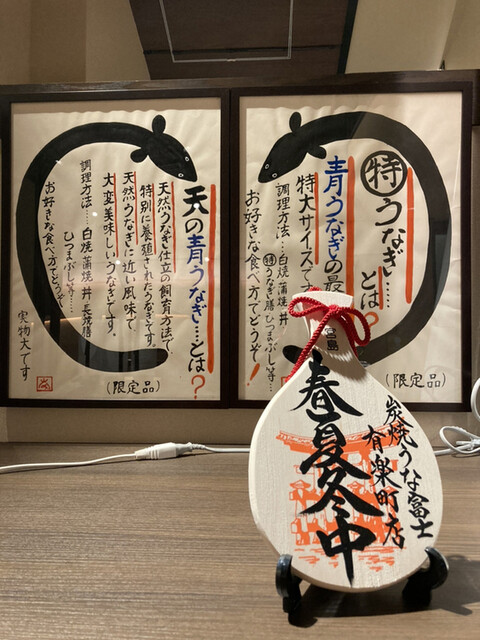 ㊕うなぎ……とは?
青うなぎの最
特大サイズです
調理方法…白焼 蒲焼 丼
㊕うなぎ膳 ひつまぶし等…
お好きな食べ方でどうぞ!
(限定品)
天の青うなぎ…とは?
天然うなぎ仕立の飼育方法で、
特別に養殖されたうなぎです。
天然うなぎに近い風味で
大変美味しいうなぎです。
調理方法……白焼 蒲焼 丼 長焼膳
ひつまぶし等…
お好きな食べ方でどうぞ
実物大です
(限定品)
宮島
春夏冬中
炭焼うな富士
有楽町店